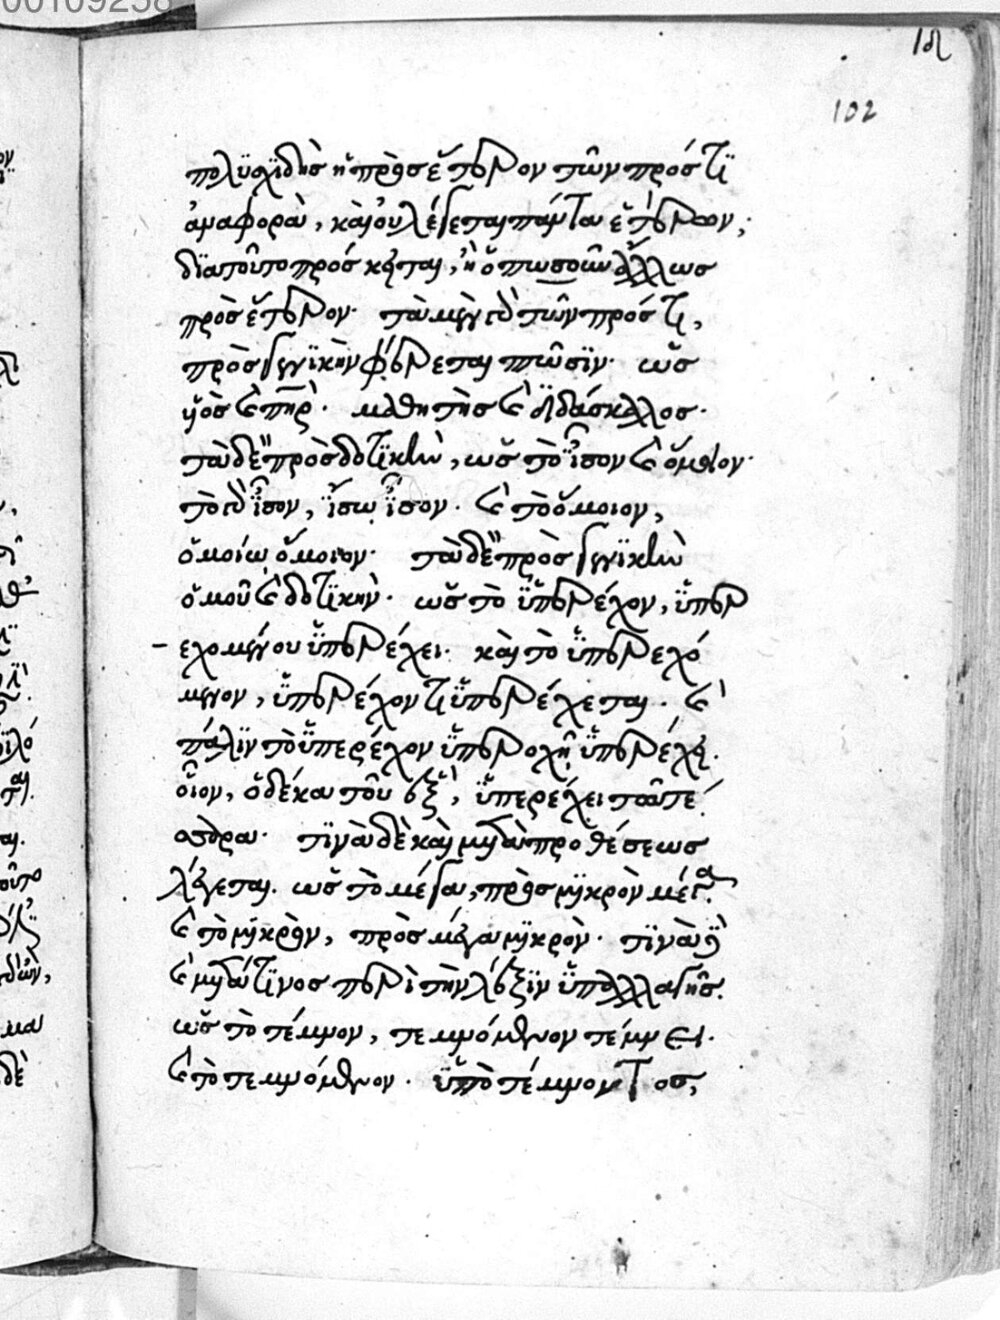 00109258
102
πολϋσχϊδὴσ ἡ πρὸσ ἕτερον τῶν πρόσ τϊ
ἀναφορὰ, καὶ οὐ λέγεται πάντα ἑτέρων,
δϊατοῦτο πρόσ κεῖται, ἢ ὅπωσοῦν ἄλλωσ
πρὸσ ἕτερον. τὰ μὲν τῶν πρόσ τι,
πρὸσ γενϊκὴν φέρεται πτῶσϊν. ὡσ
υἱὸσ καὶ πηρ. μαθητὴσ καὶ δϊδάσκαλοσ.
τὰ δὲ πρὸσ δοτϊκὴν, ὡσ τὸ ἴσον καὶ ὅμοιον.
τὸ ἴσον, ἴσω ἴσον. καὶ τὸ ὅμοιον,
ὁμοίω ὅμοιον. τὰ δὲ πρὸσ γενϊκὴν
ὁμοῦ καὶ δοτϊκὴν. ὡσ τὸ ὑπερέχον, ὑπερ
εχομένου ὑπερέχει. καὶ τὸ ὑπερεχό
μενον, ὑπερέχοντι ὑπερέχεται. καὶ
πάλϊν τὸ ὑπερέχον ὑπεροχῆ ὑπερέχει.
οἷον, ὁ δέκα τοῦ ἓξ, ὑπερέχει τῶ τέ
σσαρα. τϊνὰ δὲ καὶ μετὰ προθέσεωσ
λέγεται. ὡσ τὸ μέγα, πρὸσ μϊκρὸν μέγα.
καὶ τὸ μικρὸν, πρὸσ μέγα μϊκρὸν. τϊνὰ
καὶ μετά τϊνοσ περὶ τὴν λέξϊν ὑπαλλαγῆσ.
ὡσ τὸ τέμνον, τεμνόμενον τέμνει.
καὶ τὸ τεμνόμενον. ὑπὸ τέμνοντοσ,